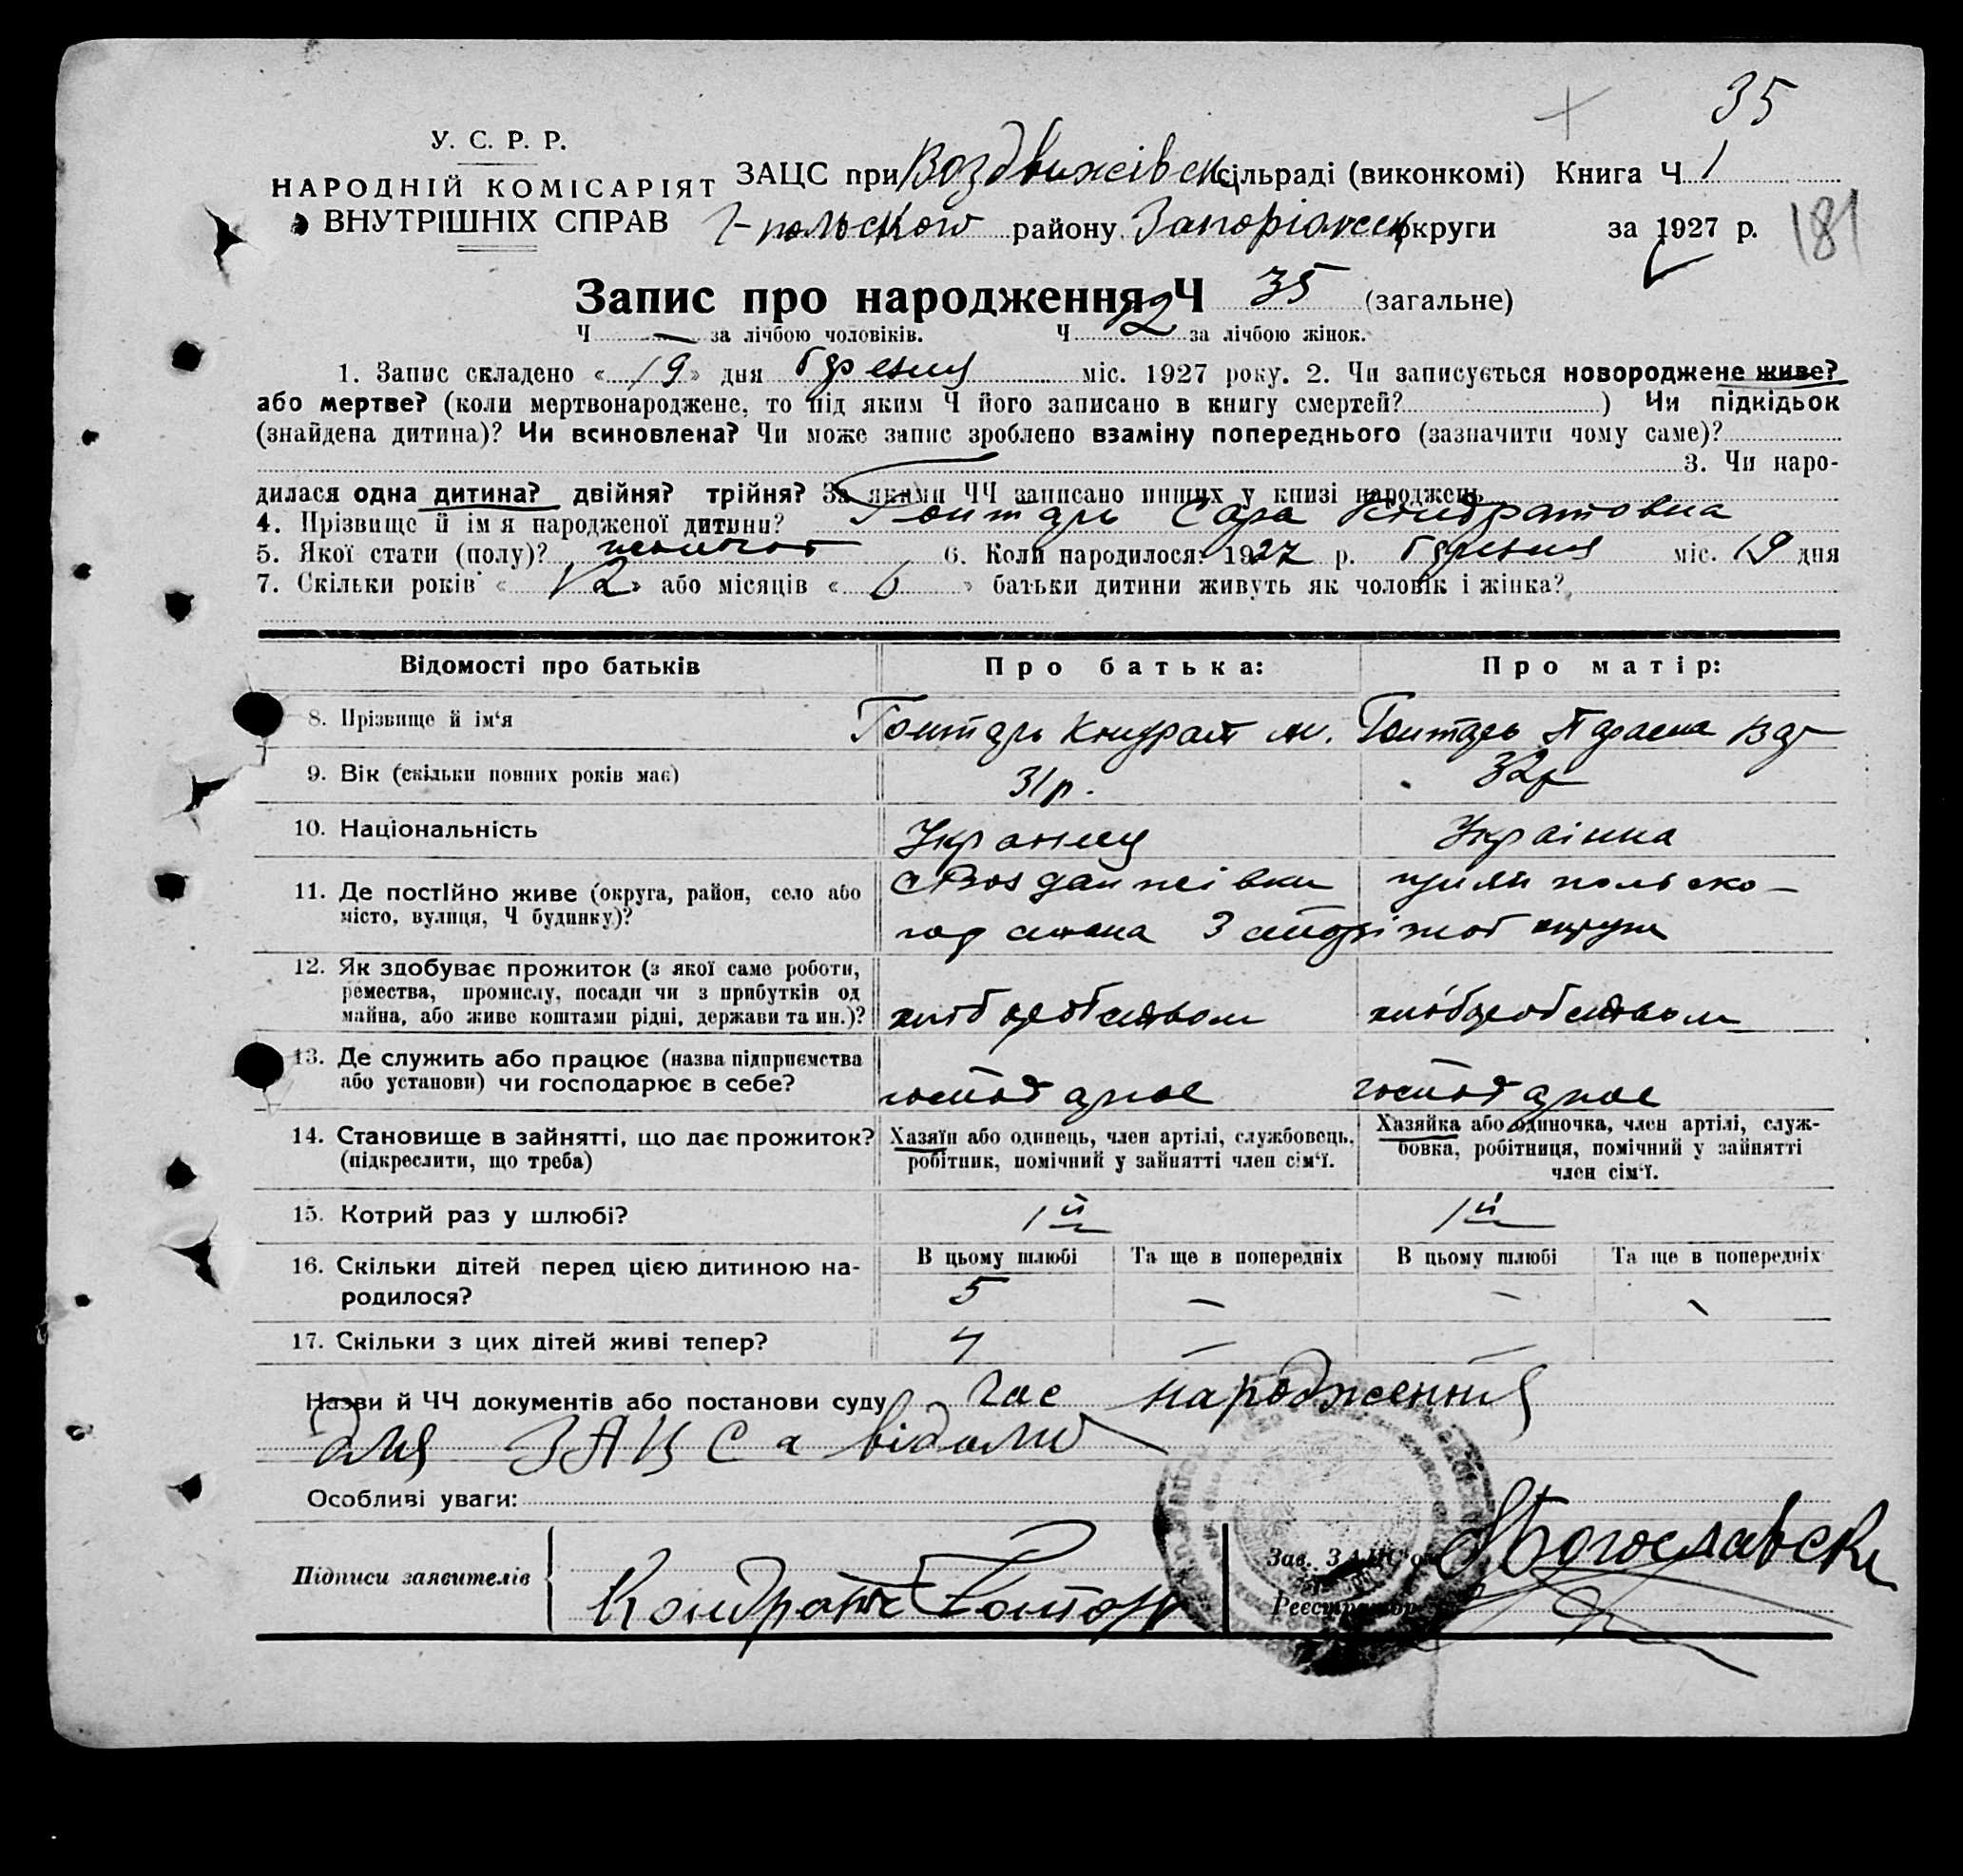 35
У. С. Р. Р.
НАРОДНІЙ КОМІСАРІЯТ
ВНУТРІШНІХ СПРАВ
ЗАЦС при Воздвижівск сільраді (виконкомі) Книга Ч 1
Г-польского району Запоріжськ округи за 1927 р.
181
Запис про народження Ч 35 (загальне)
Ч — за лічбою чоловіків. Ч 12 за лічбою жінок.
1. Запис складено « 19 » дня березня міс. 1927 року. 2. Чи записується новороджене живе?
або мертве? (коли мертвонароджене, то під яким Ч його записано в книгу смертей? ) Чи підкідьок
(знайдена дитина)? Чи всиновлена? Чи може запис зроблено взаміну попереднього (зазначити чому саме)?
3. Чи наро-
дилася одна дитина? двійня? трійня? За якими ЧЧ записано инших у книзі народжень
4. Прізвище й ім'я народженої дитини? Гонтарь Сара Кондратовна
5. Якої стати (полу)? 6. Коли народилося: 1927 р. березня міс. 19 дня
7. Скільки років « 12 » або місяців « 6 » батьки дитини живуть як чоловік і жінка?
Відомості про батьків
Про батька:
Про матір:
8. Прізвище й ім'я
Гонтарь Кондрат
Гонтарь Параска
9. Вік (скільки повних років має)
31 р.
32 р
10. Національність
Украінец
Украінка
11. Де постійно живе (округа, район, село або
місто, вулиця, Ч будинку)?
12. Як здобуває прожиток (з якої саме роботи,
ремества, промислу, посади чи з прибутків од
майна, або живе коштами рідні, держави та ин.)?
хліборобством
хліборобством
13. Де служить або працює (назва підприємства
або установи) чи господарює в себе?
господарює
господарює
14. Становище в зайнятті, що дає прожиток?
(підкреслити, що треба)
Хазяїн або одинець, член артілі, службовець,
робітник, помічний у зайнятті член сім'ї.
Хазяйка або одиночка, член артілі, служ-
бовка, робітниця, помічний у зайнятті
член сім'ї.
15. Котрий раз у шлюбі?
1й
1й
16. Скільки дітей перед цією дитиною на-
родилося?
В цьому шлюбі
Та ще в попередніх
В цьому шлюбі
Та ще в попередніх
5 — — —
17. Скільки з цих дітей живі тепер?
4 — —
Назви й ЧЧ документів або постанови суду час народження
для ЗАЦСа відомо
Особливі уваги:
Підписи заявителів
Кондрат Гонтарь
Зав. ЗАЦС'ом
Богославск
Реєстратор